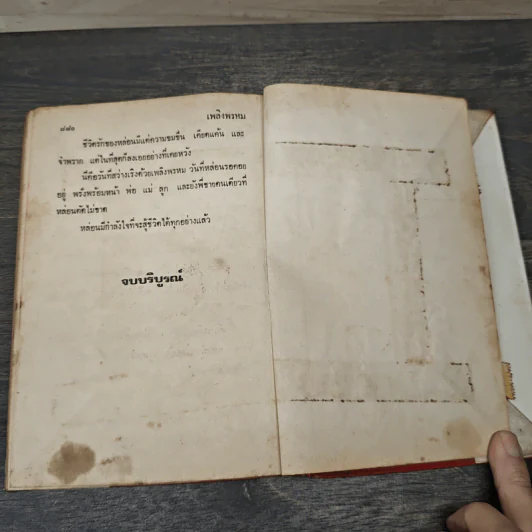 ๘๘๐
เพลิงพรหม
ชีวิตรักของหล่อนมีแต่ความขมขื่น เคียดแค้น และ
จำพราก แต่ในที่สุดก็ลงเอยอย่างที่เคยหวัง
นี่คือวันที่สว่างเริงด้วยเพลิงพรหม วันที่หล่อนรอคอย
อยู่ พรั่งพร้อมหน้า พ่อ แม่ ลูก และยังพี่ชายคนเดียวที่
หล่อนตัดไม่ขาด
หล่อนมีกำลังใจที่จะสู้ชีวิตได้ทุกอย่างแล้ว
จบบริบูรณ์